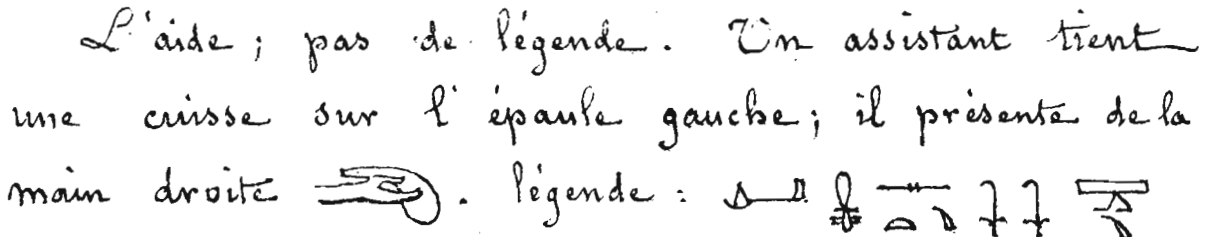 L'aide ; pas de légende. Un assistant tient
une cuisse sur l'épaule gauche ; il présente de la
main droite . légende :